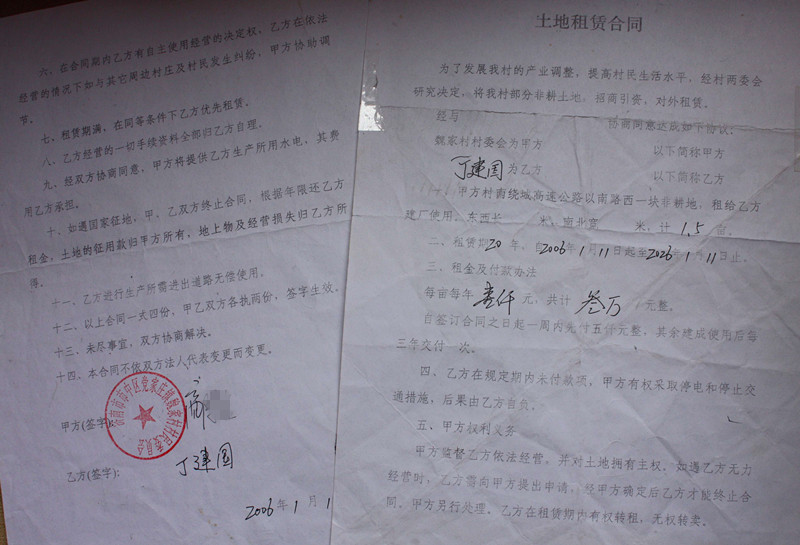 土地租赁合同
为了发展我村的产业调整，提高村民生活水平，经村两委会
研究决定，将我村部分非耕土地，招商引资，对外租赁。
经与
协商同意达成如下协议：
魏家村村委会为甲方 以下简称甲方
丁建国为乙方 以下简称乙方
（一）甲方村南绕城高速公路以南路西一块非耕地，租给乙方
建厂使用。东西长 米，南北宽 米，计 1.5 亩。
二、租赁期20年，自2006年1月11日起至2026年1月11日止。
三、租金及付款办法
每亩每年 壹仟 元，共计 叁万 元整。
自签订合同之日起一周内先付五仟元整，其余建成使用后每
三年交付一次。
四、乙方在规定期内未付款项，甲方有权采取停电和停止交
通措施，后果由乙方自负。
五、甲方权利义务
甲方监督乙方依法经营。并对土地拥有主权，如遇乙方无力
经营时，乙方需向甲方提出申请，经甲方确定后乙方才能终止合
同，甲方另行处理。乙方在租赁期内有权转租，无权转卖。
六、在合同期内乙方有自主使用经营的决定权，乙方在依法
经营的情况下如与其它周边村庄及村民发生纠纷，甲方协助调
节。
七、租赁期满，在同等条件下乙方优先租赁。
八、乙方经营的一切手续资料全部归乙方自理。
九、经双方协商同意，甲方将提供乙方生产所用水电，其费
用乙方承担。
十、如遇国家征地，甲、乙双方终止合同，根据年限还乙方
租金，土地的征用款归甲方所有，地上物及经营损失归乙方所
得。
十一、乙方进行生产所需进出道路无偿使用。
十二、以上合同一式四份，甲乙双方各执两份，签字生效。
十三、未尽事宜，双方协商解决。
十四、本合同不依双方法人代表变更而变更。
甲方(签字):
济南市市中区党家庄镇魏家村村民委员会
乙方(签字): 丁建国
2006年1月1